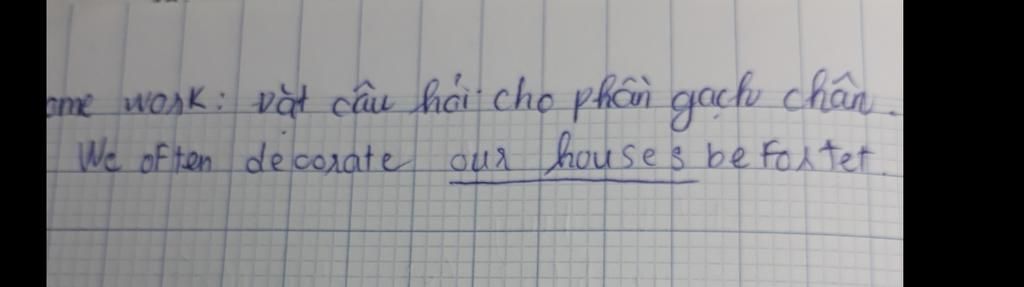 ome work: Đặt câu hỏi cho phần gạch chân.
We often decorate our houses before Tet.